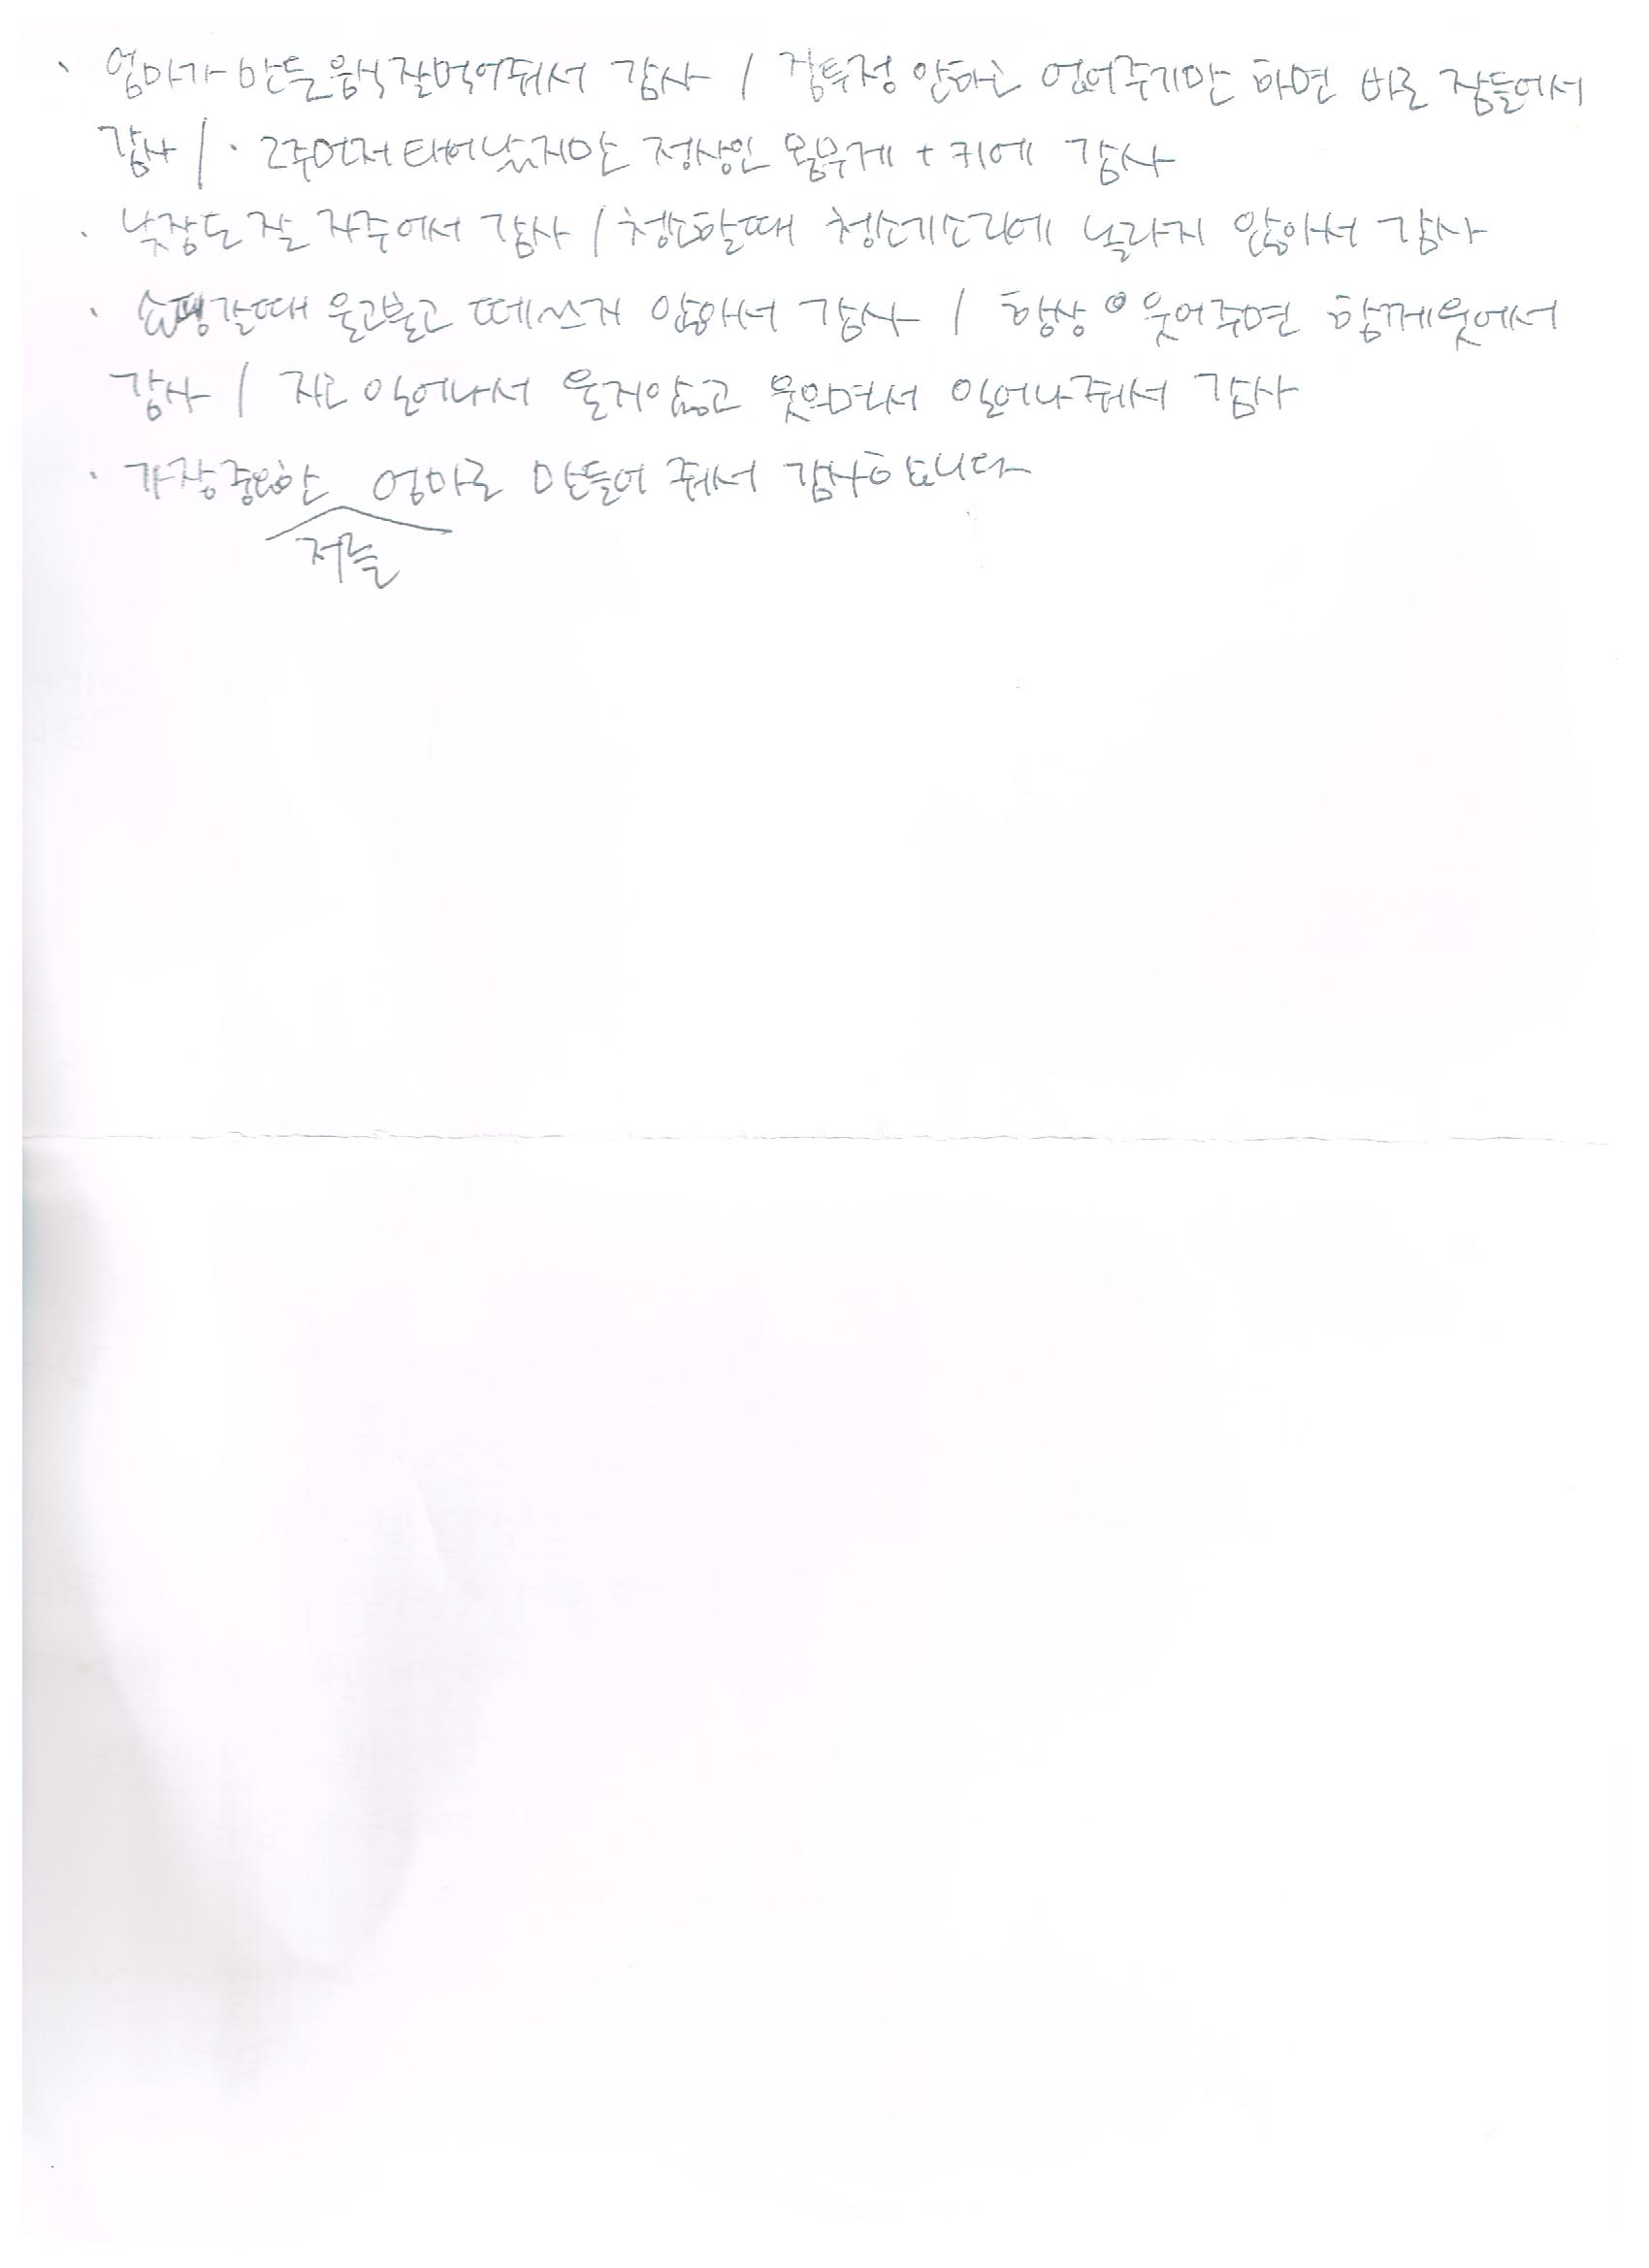 · 엄마가 만든 음식 잘먹어줘서 감사 / 잠투정 안하는 업어주기만 하면 바로 잠들어서
감사 / · 2주먼저 태어났지만 정상인 몸무게 + 키에 감사
· 낮잠도 잘 자주어서 감사 / 청소할때 청소기소리에 놀라지 않아서 감사
· 쇼핑갈때 울고불고 떼쓰지 않아서 감사 / 항상 웃어주면 함께웃어서
감사 / 자고 일어나서 울지않고 웃으면서 일어나줘서 감사
· 가장중요한 엄마로 만들어 줘서 감사합니다
저를